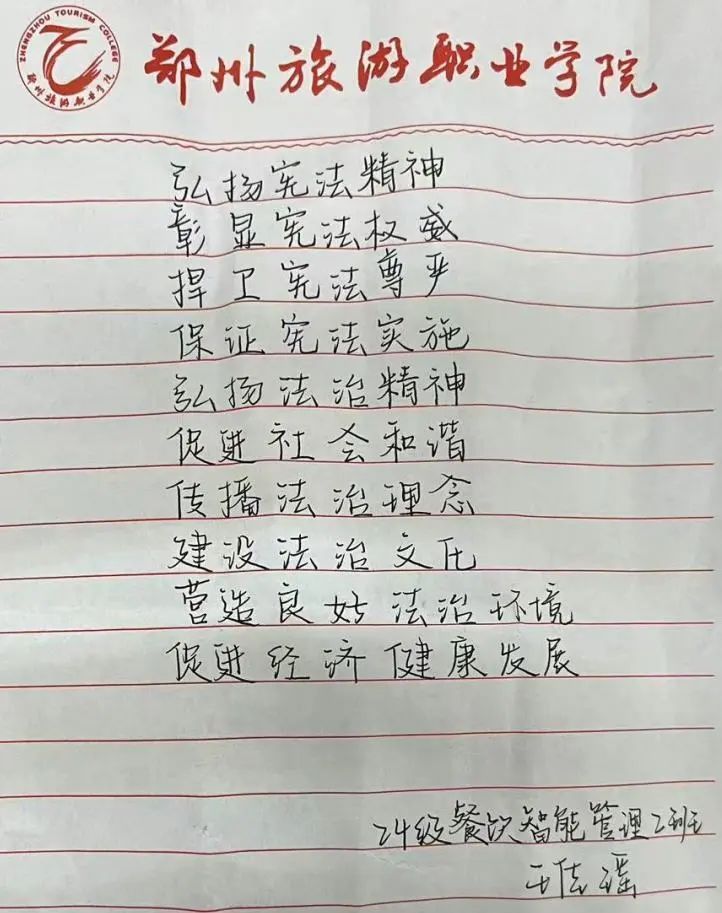 ZHENGZHOU TOURISM COLLEGE
郑州旅游职业学院
郑州旅游职业学院
弘扬宪法精神
彰显宪法权威
捍卫宪法尊严
保证宪法实施
弘扬法治精神
促进社会和谐
传播法治理念
建设法治文化
营造良好法治环境
促进经济健康发展
24级餐饮智能管理2班
王佳瑶